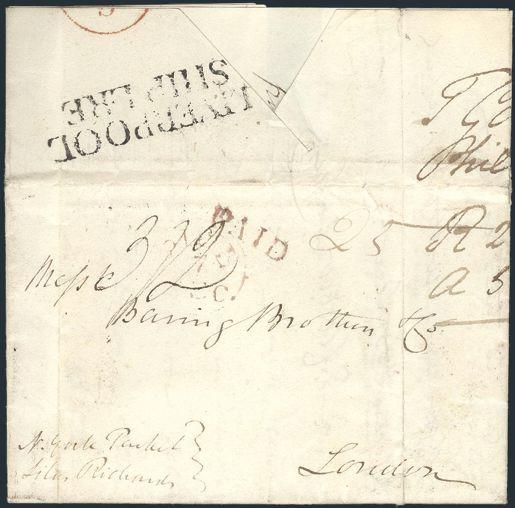 5
LIVERPOOL
SHIP LRE
Phil
PAID
25 R 2
A 5
3/2
Messrs
Baring Brothers & Co.
N. York Packet
Silas Richards
London